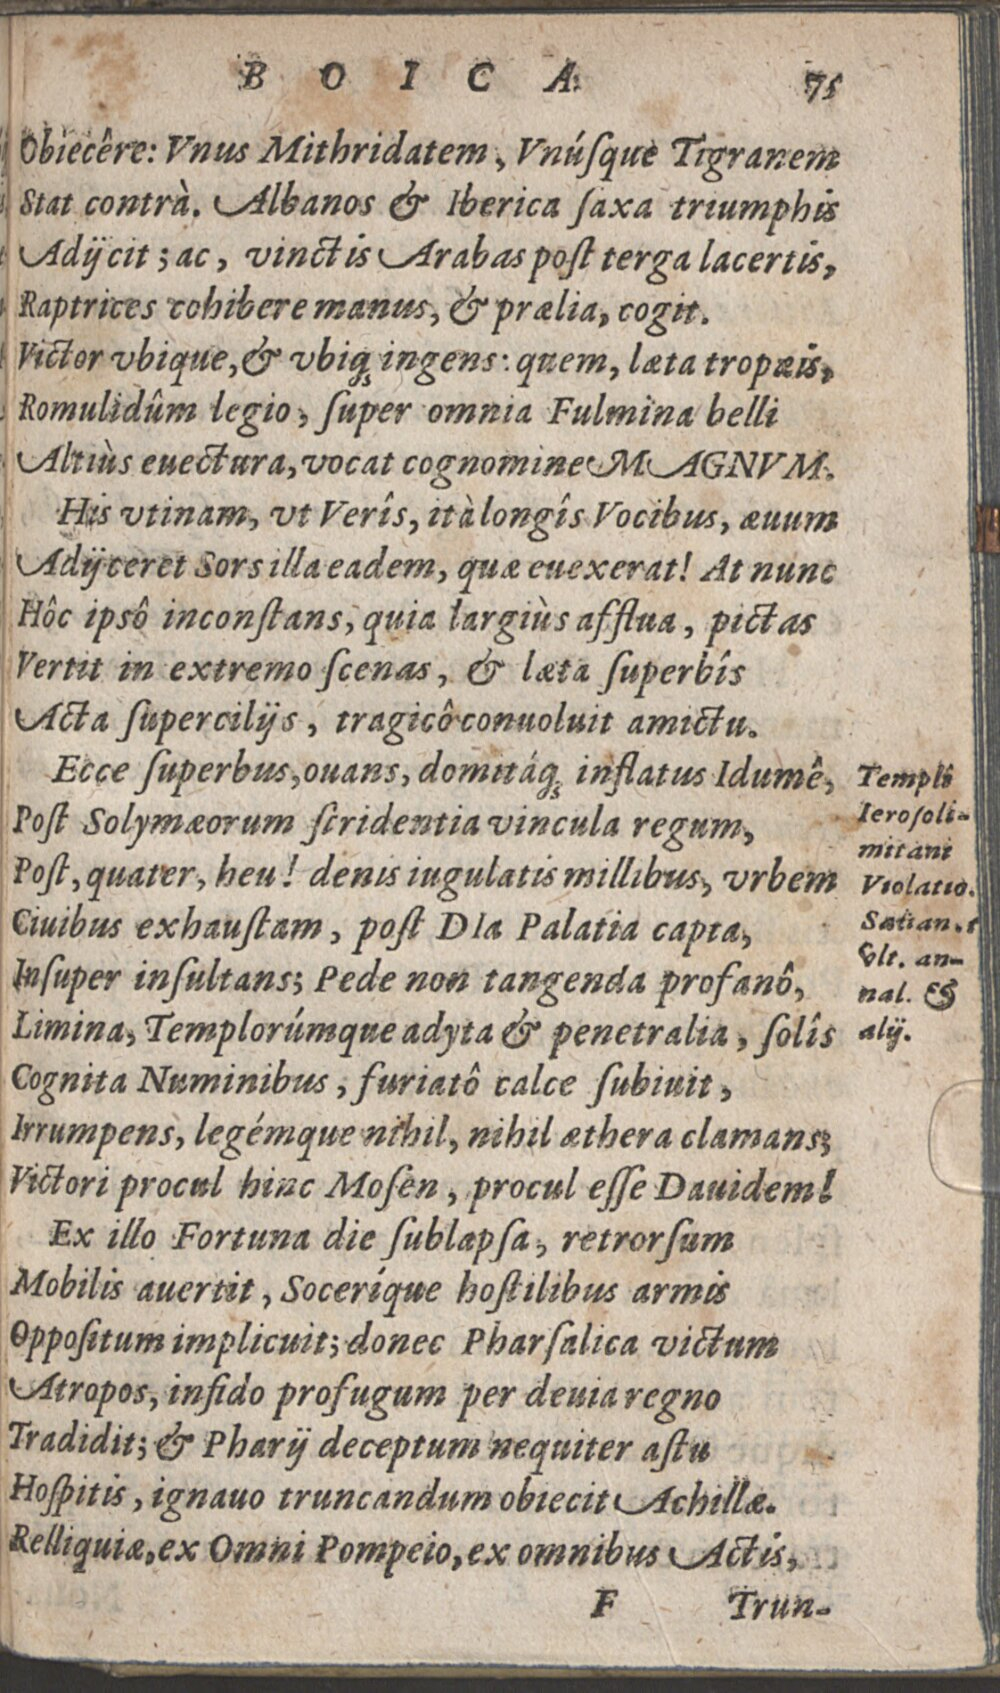 BOICA 75
Obiecêre: Vnus Mithridatem, Vnúſque Tigranem
Stat contrà. Albanos & Iberica ſaxa triumphis
Adijcit; ac, vinctis Arabas poſt terga lacertis,
Raptrices cohibere manus, & prælia, cogit.
Victor vbique, & vbiq; ingens: quem, læta tropæis,
Romulidûm legio, ſuper omnia Fulmina belli
Altiùs euectura, vocat cognomine MAGNVM.
His vtinam, vt Verîs, ità longîs Vocibus, æuum
Adijceret Sors illa eadem, quæ euexerat! At nunc
Hôc ipsô inconſtans, quia largiùs afflua, pictas
Vertit in extremo ſcenas, & læta ſuperbîs
Acta ſupercilijs, tragicô conuoluit amictu.
Ecce ſuperbus, ouans, domitáq; inflatus Idumê,
Poſt Solymæorum ſtridentia vincula regum,
Poſt, quater, heu! denis iugulatis millibus, vrbem
Ciuibus exhauſtam, poſt DIa Palatia capta,
Inſuper inſultans; Pede non tangenda profanô,
Limina, Templorúmque adyta & penetralia, ſolîs
Cognita Numinibus, furiatô calce ſubiuit,
Irrumpens, legémque nihil, nihil æthera clamans;
Victori procul hinc Moſen, procul eſſe Dauidem!
Ex illo Fortuna die ſublapſa, retrorſum
Mobilis auertit, Soceríque hoſtilibus armis
Oppoſitum implicuit; donec Pharſalica victum
Atropos, infido profugum per deuia regno
Tradidit; & Pharij deceptum nequiter aſtu
Hoſpitis, ignauo truncandum obiecit Achillæ.
Relliquiæ, ex Omni Pompeio, ex omnibus Actis,
F Trun-
Templi
Ieroſoli-
mitani
Violatio.
Salian. t
vlt. an-
nal. &
alij.